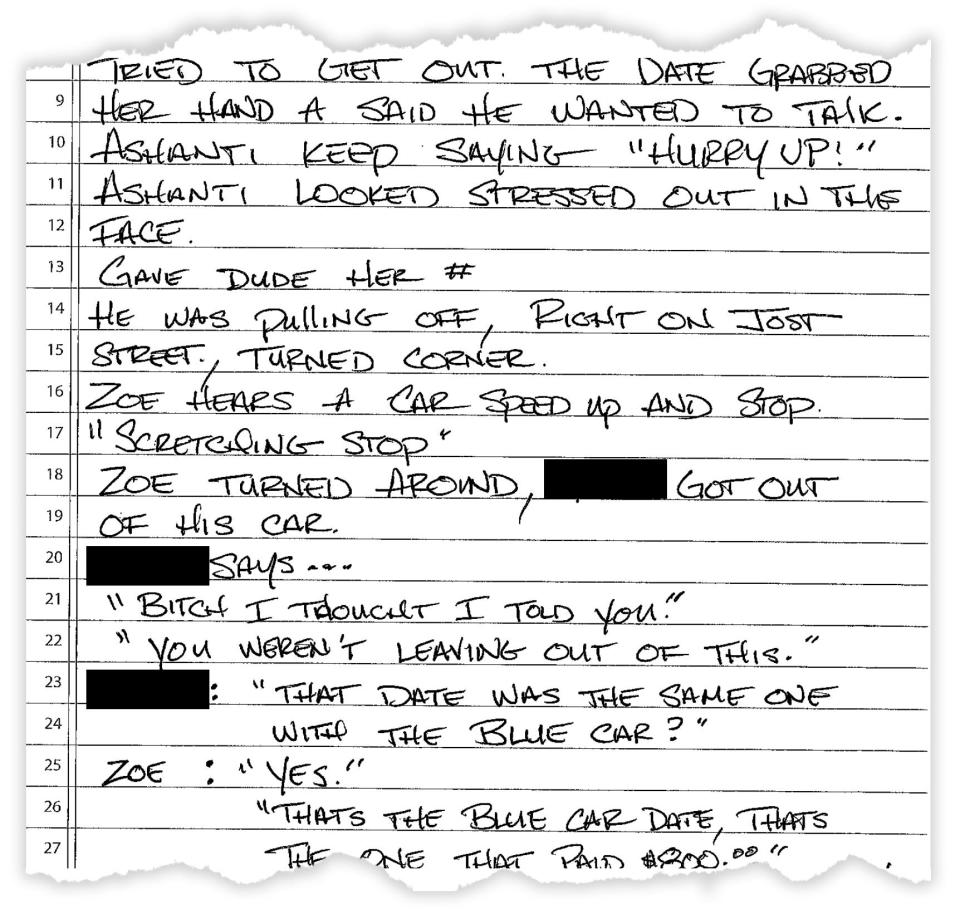 TRIED TO GET OUT. THE DATE GRABBED
9 HER HAND A SAID HE WANTED TO TALK.
10 ASHANTI KEEP SAYING "HURRY UP!"
11 ASHANTI LOOKED STRESSED OUT IN THE
12 FACE.
13 GAVE DUDE HER #
14 HE WAS PULLING OFF, RIGHT ON JOST
15 STREET., TURNED CORNER.
16 ZOE HEARS A CAR SPEED UP AND STOP.
17 "SCRETCHING STOP"
18 ZOE TURNED AROUND, GOT OUT
19 OF HIS CAR.
20 SAYS ---
21 "BITCH I THOUGHT I TOLD YOU."
22 "YOU WEREN'T LEAVING OUT OF THIS."
23 : "THAT DATE WAS THE SAME ONE
24 WITH THE BLUE CAR?"
25 ZOE : "YES."
26 "THATS THE BLUE CAR DATE, THATS
27 THE ONE THAT PAID .00"